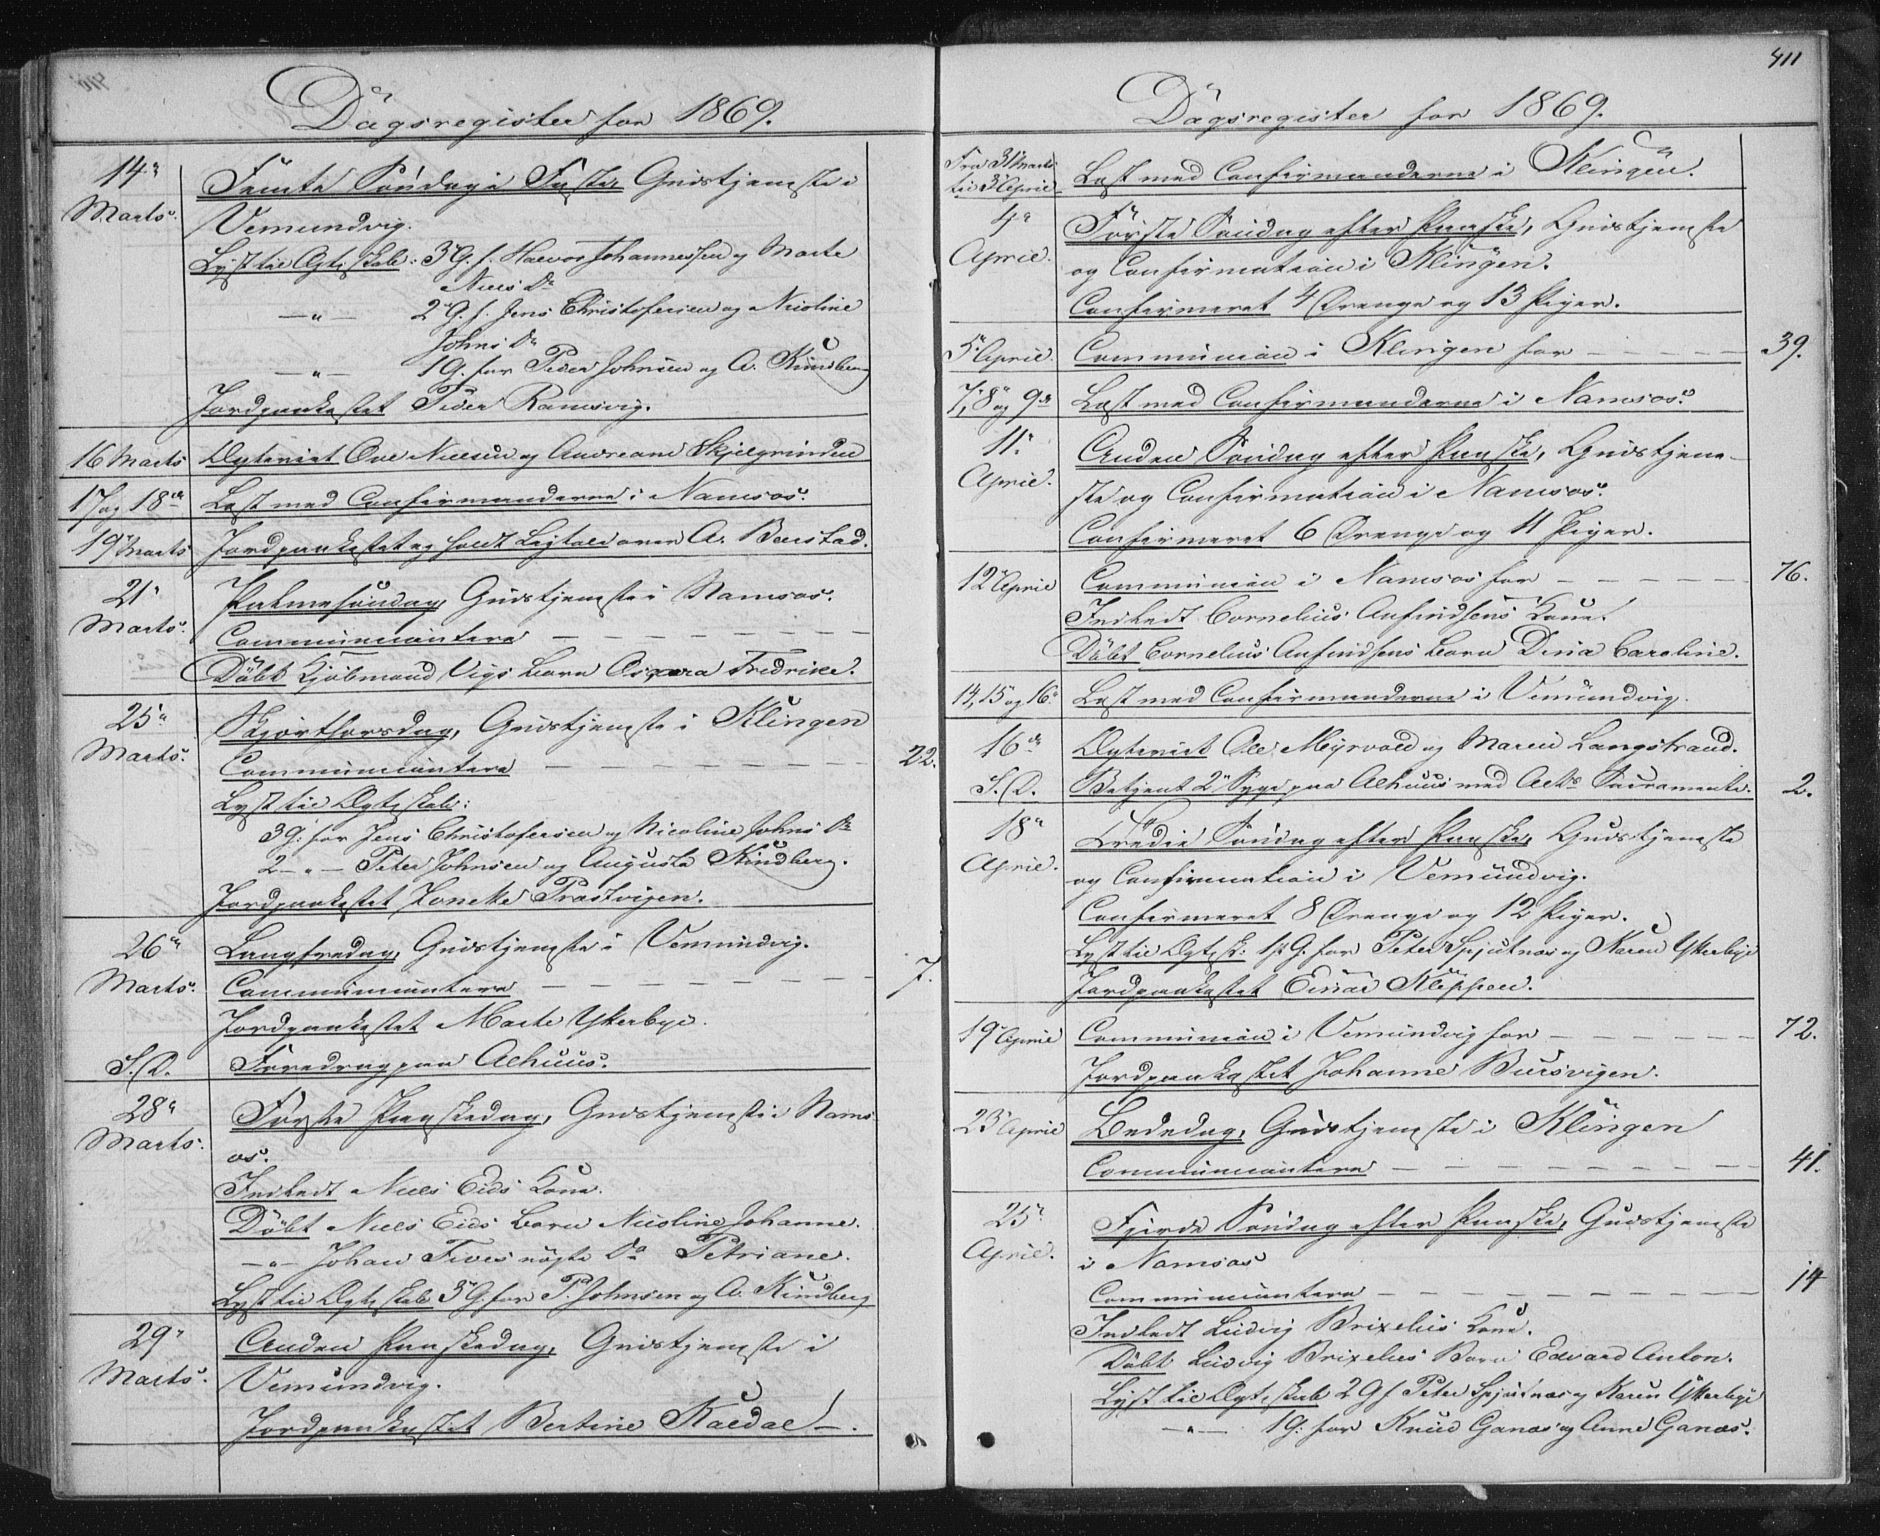 Dagsregister for 1869.
14de Femte Søndag i Faste, Gudstjeneste i
Marts. Vemundvig.
Lyst til Ægteskab: 3 G. f. Halvor Johannessen og Marte
Niels Dr
—"— 2 G. f. Jens Christofersen og Nicoline
Johns Dr
—"— 1 G. for Peder Johnsen og A. Kindberg
Jordpaakastet Peder Ramsvig.
16 Marts Ægteviet Ole Nielsen og Andreane Skjelgrinden
17 og 18de Læst med Confirmanderne i Namsos.
19 Marts Jordpaakastet og holdt Ligtale over A. Benstad.
21de Palmesøndag, Gudstjeneste i Namsos.
Marts. Communicantere — — — — — — —
Døbt Kjøbmand Vigs Barn Fredrikke.
25de Skjærthorsdag, Gudstjeneste i Klingen
Marts. Communicantere — — — — — — — 22.
Lyst til Ægteskab:
3 G. for Jens Christofersen og Nicoline Johns Dr
2 —"— Peter Johnsen og Augusta Kindberg.
Jordpaakastet Præstvigen.
26de Langfredag, Gudstjeneste i Vemundvig.
Marts. Communicantere — — — — — — — 7.
Jordpaakastet Marte Ytterbye.
S. D. Foredrag paa Aelhuus.
28de Første Paaskedag, Gudstjeneste i Nams-
Marts. os.
Indledt Niels Eids Kone.
Døbt Niels Eids Barn Nicoline Johanne.
—"— Johan Petriane.
Lyst til Ægteskab 3 G. for P. Johnsen og A. Kindberg
29de Anden Paaskedag, Gudstjeneste i
Marts. Vemundvig.
Jordpaakastet Bertine Kaldal —.
411
Dagsregister for 1869.
Fra 31 Marts
til 3 April Læst med Confirmanderne i Klingen.
4de Første Søndag efter Paaske, Gudstjeneste
April. og Confirmation i Klingen.
Confirmeret 4 Drenge og 13 Piger.
5. April. Communion i Klingen for — — — — — 39.
7, 8 og 9de Læst med Confirmanderne i Namsos.
11. Anden Søndag efter Paaske, Gudstjene-
April. ste og Confirmation i Namsos.
Confirmeret 6 Drenge og 11 Piger.
12 April Communion i Namsos for — — — — — 76.
Indledt Cornelius Anfindsens Kone.
Døbt Cornelius Anfindsens Barn Dina Caroline.
14, 15 og 16. Læst med Confirmanderne i Vemundvig.
16de Ægteviet Ole Myrvold og Maren Langstrand.
S. D. Betjent 2 Syge paa Aelhuus med Alt. Sacramente. 2.
18de Tredie Søndag efter Paaske, Gudstjeneste
April. og Confirmation i Vemundvig.
Confirmeret 8 Drenge og 12 Piger.
Lyst til Ægtsk: 1ste G. for Peter Spjutnæs og Karen Ytterbye
Jordpaakastet Einar Kleppen.
19 April Communion i Vemundvig for — — — — — 72.
Jordpaakastet Johanne Buersvigen.
23 April Bededag, Gudstjeneste i Klingen
Communicantere — — — — — — — 41.
25de Fjerde Søndag efter Paaske, Gudstjeneste
April. i Namsos
Communicantere — — — — — — — 14
Indledt Ludvig Brixelius Kone.
Døbt Ludvig Brixelius Barn Edvard Anton.
Lyst til Ægteskab 2 G f Peter Spjutnæs og Karen Ytterbye
—"— 1 G. for Knud Ganæs og Anne Ganæs.